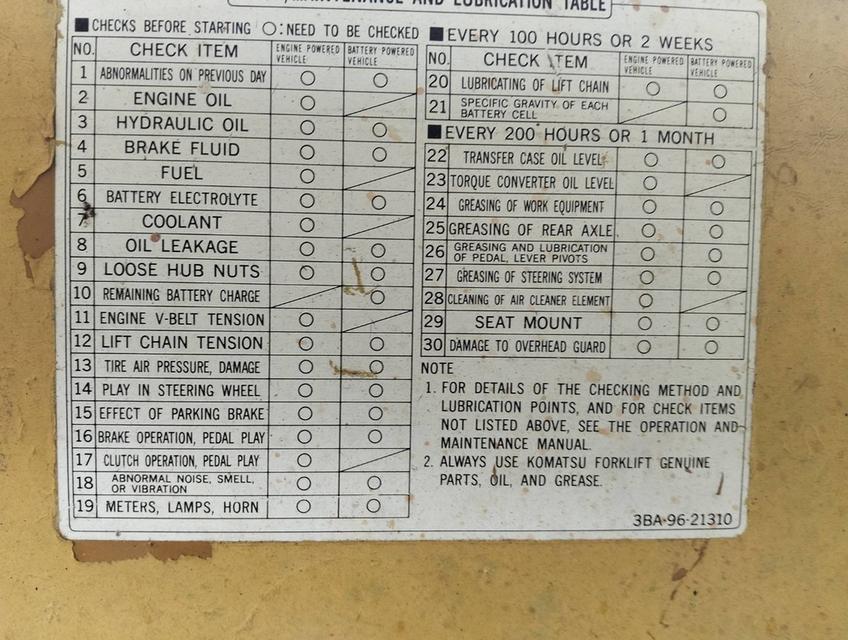 AND LUBRICATION TABLE
■ CHECKS BEFORE STARTING ○: NEED TO BE CHECKED
NO. CHECK ITEM ENGINE POWERED VEHICLE BATTERY POWERED VEHICLE
1 ABNORMALITIES ON PREVIOUS DAY ○ ○
2 ENGINE OIL ○
3 HYDRAULIC OIL ○ ○
4 BRAKE FLUID ○ ○
5 FUEL ○
6 BATTERY ELECTROLYTE ○ ○
7 COOLANT ○
8 OIL LEAKAGE ○ ○
9 LOOSE HUB NUTS ○ ○
10 REMAINING BATTERY CHARGE ○
11 ENGINE V-BELT TENSION ○
12 LIFT CHAIN TENSION ○ ○
13 TIRE AIR PRESSURE, DAMAGE ○ ○
14 PLAY IN STEERING WHEEL ○ ○
15 EFFECT OF PARKING BRAKE ○ ○
16 BRAKE OPERATION, PEDAL PLAY ○ ○
17 CLUTCH OPERATION, PEDAL PLAY ○
18 ABNORMAL NOISE, SMELL,
OR VIBRATION ○ ○
19 METERS, LAMPS, HORN ○ ○
■ EVERY 100 HOURS OR 2 WEEKS
NO. CHECK ITEM ENGINE POWERED VEHICLE BATTERY POWERED VEHICLE
20 LUBRICATING OF LIFT CHAIN ○ ○
21 SPECIFIC GRAVITY OF EACH
BATTERY CELL ○
■ EVERY 200 HOURS OR 1 MONTH
22 TRANSFER CASE OIL LEVEL ○ ○
23 TORQUE CONVERTER OIL LEVEL ○
24 GREASING OF WORK EQUIPMENT ○ ○
25 GREASING OF REAR AXLE ○ ○
26 GREASING AND LUBRICATION
OF PEDAL, LEVER PIVOTS ○ ○
27 GREASING OF STEERING SYSTEM ○ ○
28 CLEANING OF AIR CLEANER ELEMENT ○
29 SEAT MOUNT ○ ○
30 DAMAGE TO OVERHEAD GUARD ○ ○
NOTE
1. FOR DETAILS OF THE CHECKING METHOD AND
LUBRICATION POINTS, AND FOR CHECK ITEMS
NOT LISTED ABOVE, SEE THE OPERATION AND
MAINTENANCE MANUAL.
2. ALWAYS USE KOMATSU FORKLIFT GENUINE
PARTS, OIL, AND GREASE.
3BA-96-21310